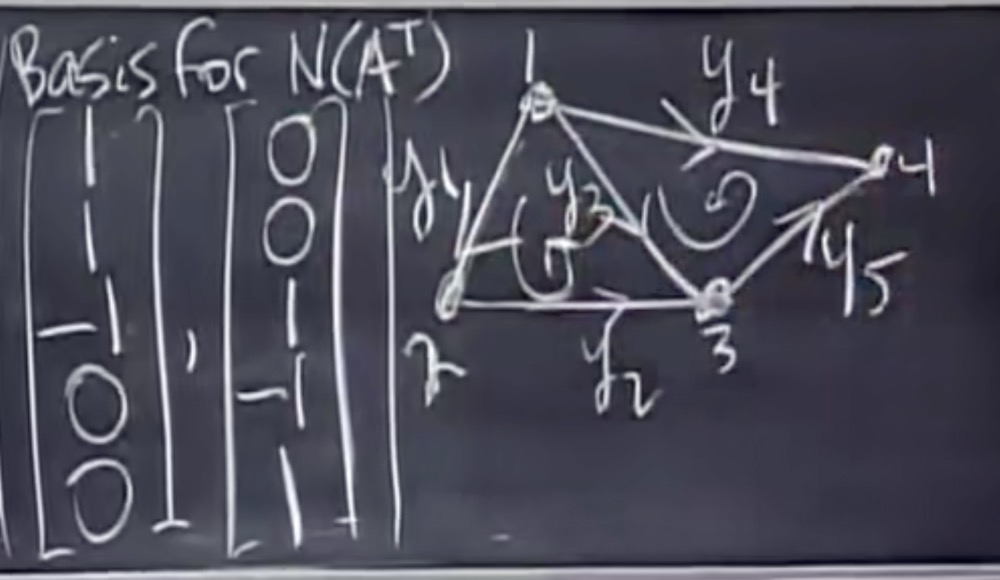 Basis for N(Aᵀ)
[1 1 -1 0 0] , [0 0 1 -1 1]
1
y4
4
y1
y3
y5
2
y2
3